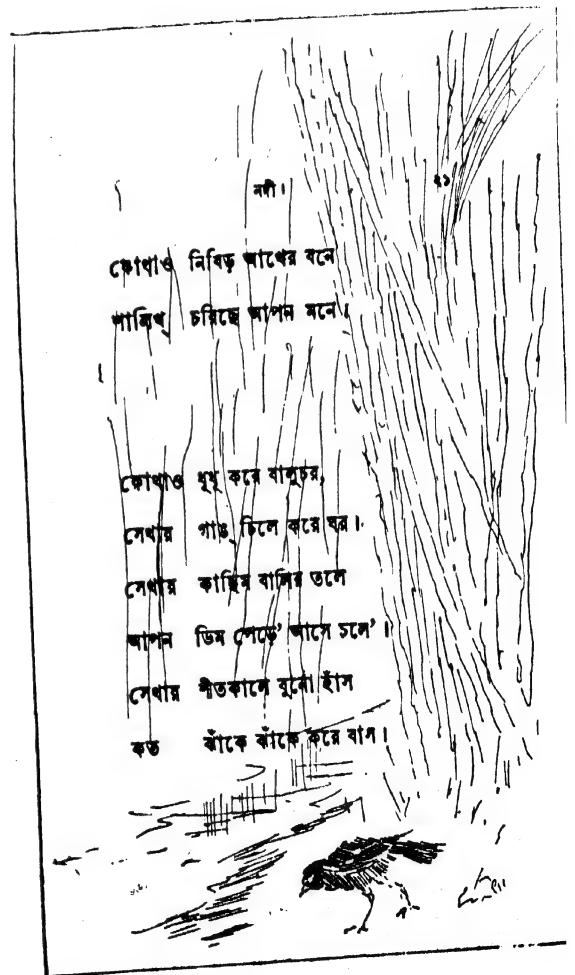 নদী। ২১
কোথাও নিবিড় আখের বনে
শালিখ্ চরিছে আপন মনে।
কোথাও ধূধূ করে বালুচর,
সেথায় গাঙ্ চিলে করে ঘর।
সেথায় কাছিম বালির তলে
আপন ডিম পেড়ে' আসে চলে'।
সেথায় শীতকালে বুনো হাঁস
কত ঝাঁকে ঝাঁকে করে বাস।